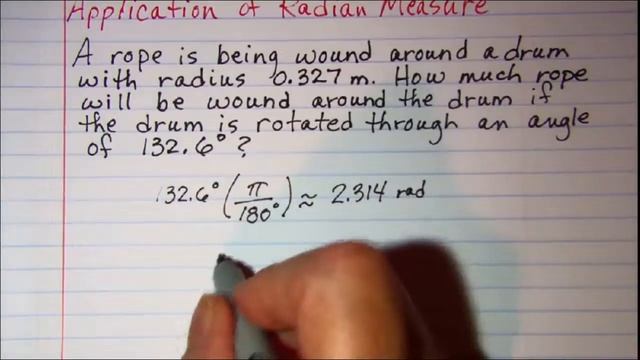 Application of Radian Measure
A rope is being wound around a drum
with radius 0.327 m. How much rope
will be wound around the drum if
the drum is rotated through an angle
of 132.6°?
132.6° (π/180°) ≈ 2.314 rad